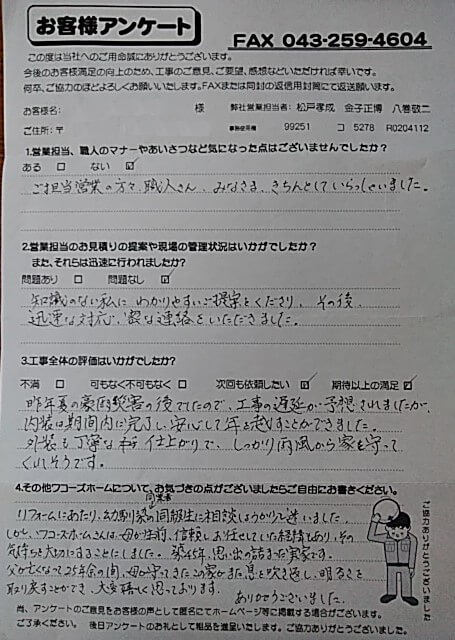 お客様アンケート
FAX 043-259-4604
この度は当社へのご用命誠にありがとうございます。
今後のお客様満足の向上のため、工事のご意見、ご要望、感想などいただければ幸いです。
何卒、ご協力のほどよろしくお願いいたします。FAXまたは同封の返信用封筒にて返送願います。
お客様名: 様 弊社営業担当者: 松戸孝成 金子正博 八巻敬二
ご住所:〒 事務使用欄 99251 コ 5278 R0204112
1.営業担当、職人のマナーやあいさつなど気になった点はございませんでしたか?
ある □ ない ☑
ご担当営業の方々、職人さん、みなさま、きちんとしていらっしゃいました。
2.営業担当のお見積りの提案や現場の管理状況はいかがでしたか?
また、それらは迅速に行われましたか?
問題あり □ 問題なし ☑
知識のない私に わかりやすいご提案をくださり、その後、
迅速な対応、密な連絡をいただきました。
3.工事全体の評価はいかがでしたか?
不満 □ 可もなく不可もなく □ 次回も依頼したい ☑ 期待以上の満足 ☑
昨年夏の豪雨災害の後でしたので、工事の遅延が予想されましたが、
内装は期間内に完了し、安心して年を越すことができました。
外装も丁寧な 仕上がりで、しっかり雨風から家を守って
くれそうです。
4.その他ワコーズホームについて、お気づきの点がございましたらご自由にお書きください。
同業者
リフォームにあたり、幼馴染の同級生に相談しようかと迷いました。
しかし、ワコーズホームさんは、母が生前、信頼しお任せしていた経緯もあり、その
気持ちを大切にすることにしました。築45年、思い出の詰まった実家です。
父が亡くなって25年余の間、母が守ってきたこの家がまた息を吹き返し、明るさを
取り戻すことができ、大変嬉しく思っております。
ありがとうございました。
ご協力ありがとうございました
尚、アンケートのご意見をお客様の声として匿名にてホームページ等に掲載する場合がございます。
ご了承ください。 後日アンケートのお礼として粗品を進呈いたします。ご協力ありがとうございました。